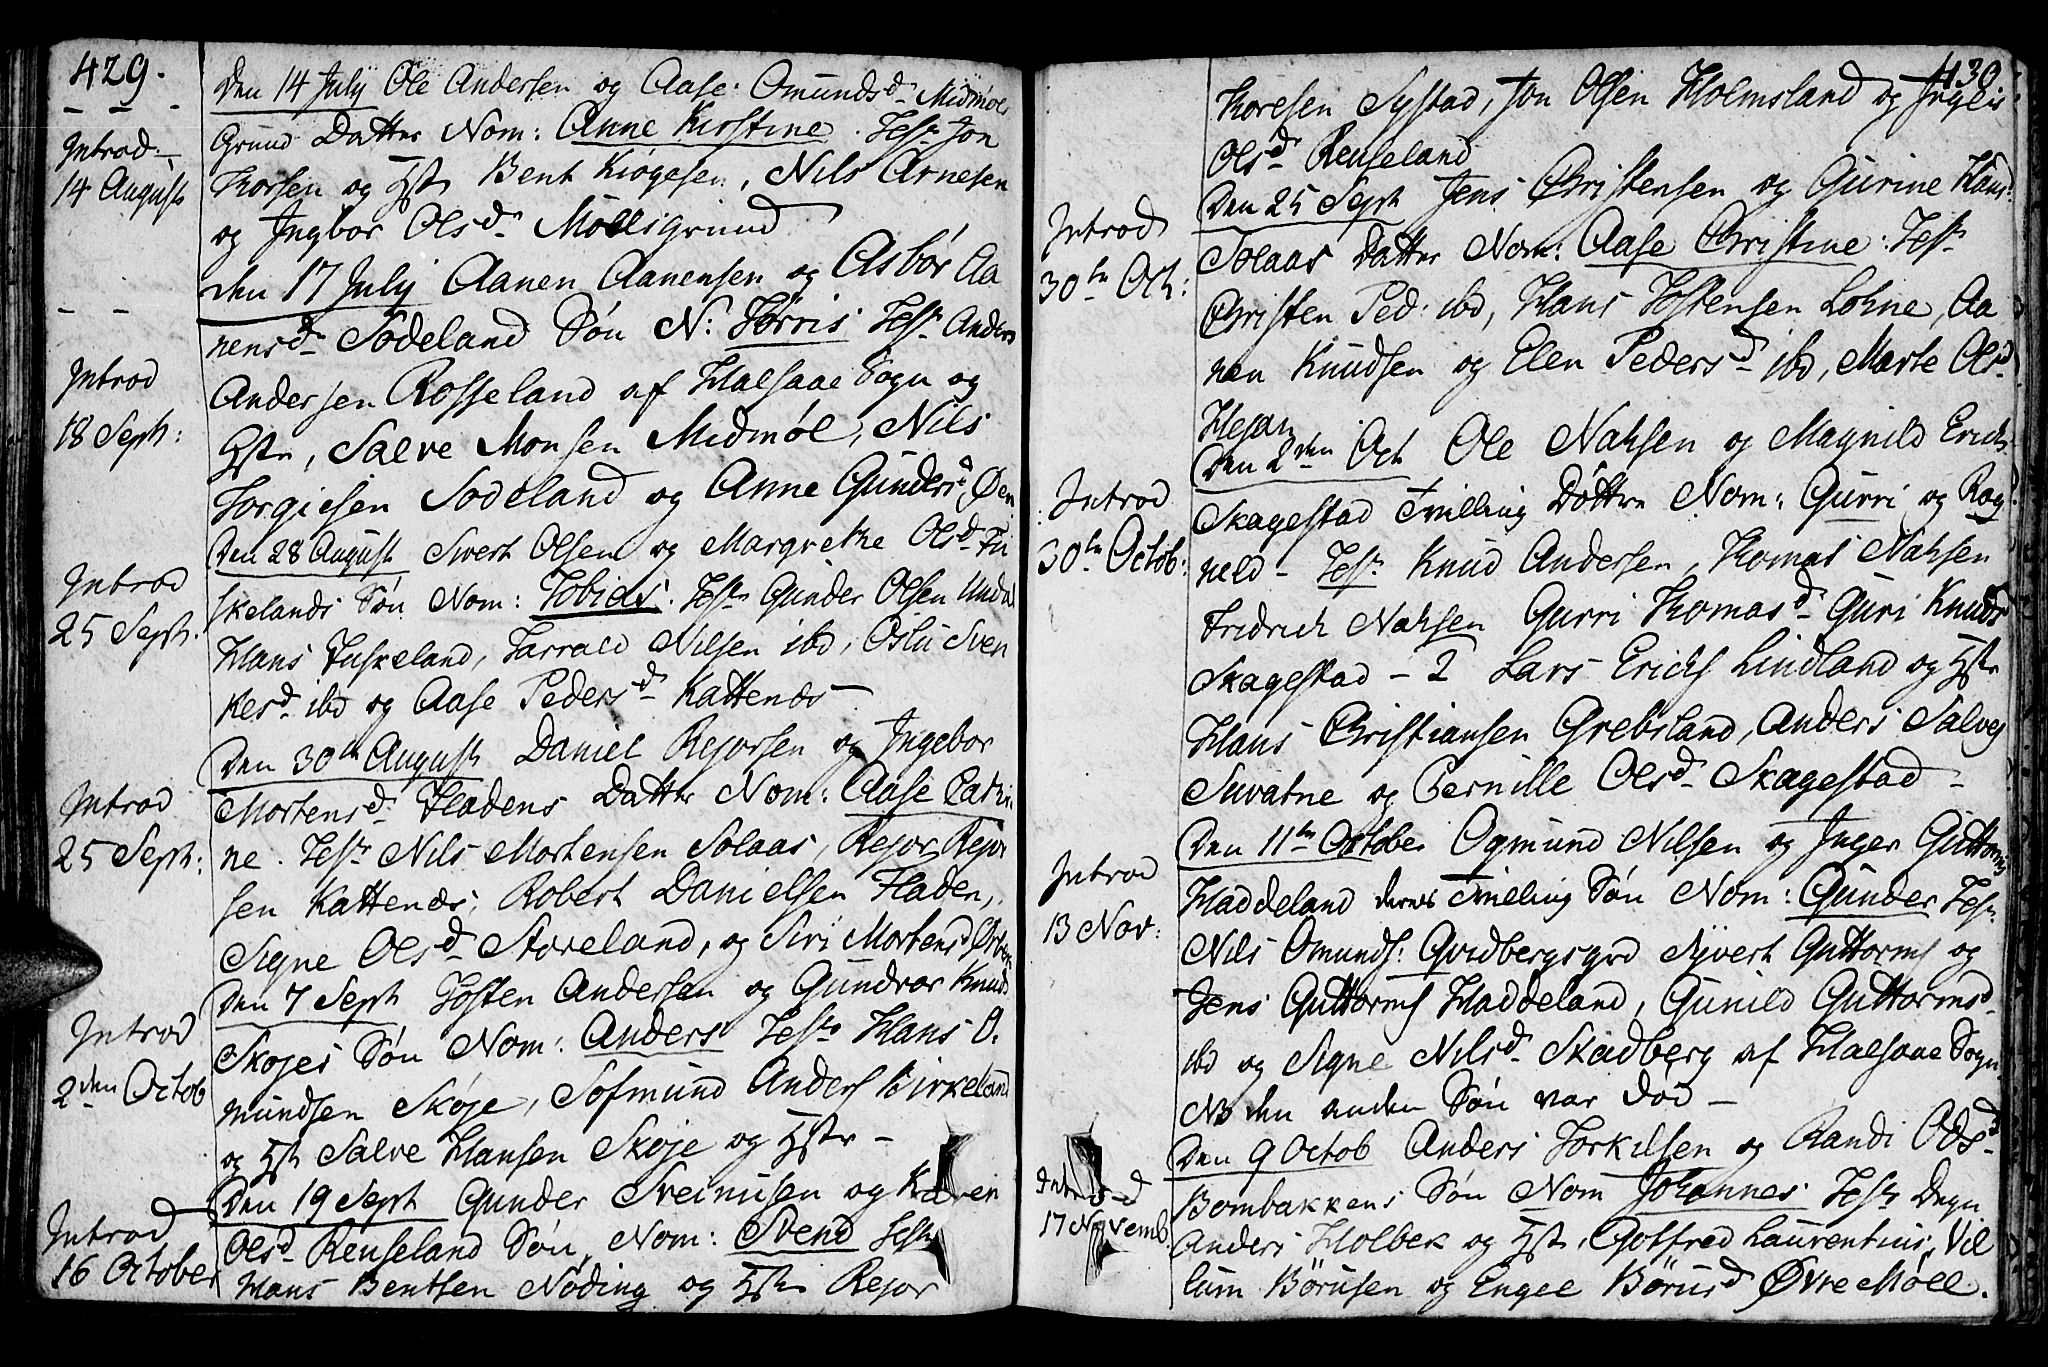 429.
Introd:
14 August
Introd
18 Sept:
Introd
25 Sept.
Introd
25 Sept:
Introd
2den Octob
Introd
16 October
Den 14 July Ole Andersen og Aase Omundsd Midmøls
Grund Datter Nom: Anne Kirstine. Test Jon
Thorsen og Hstr Bent Kiøgesen, Nils Arnesen
og Ingbor Olsd Møllsgrund
den 17 July Aanen Aanensen og Asbør Aa
nensd Sodeland Søn N: Tørris Test Anders
Andersen Rosseland af Halsaae Sogn og
Hstr, Salve Monsen Midmøl, Nils
Torgiesen Sodeland og Anne Gundersd, Øen
Den 28 August Sivert Olsen og Margrethe Olsd Fu
skelands Søn Nom: Tobias. Test Gunder Olsen Undal
Hans Fuskeland, Tarrald Nilsen ibd, Oslu Sven
kesd ibd og Aase Pedersd Kattenæs
Den 30te August Daniel Rejorsen og Ingebor
Mortensd Fladens Datter Nom: Aase Catri
ne. Test Nils Mortensen Solaas, Rejor Rejor
sen Kattenæs, Robert Danielsen Fladen,
Signe Olsd Storeland, og Siri Mortensd
Den 7 Sept Tosten Andersen og Gundvor Knuds
Skojes Søn Nom: Anders Test Hans O.
mundsen Skoje, Sofmund Anders Birkeland
og Hstr Salve Hansen Skoje og Hstr
Den 19 Sept Gunder Sveinusen og Karen
Olsd Renseland Søn, Nom: Svend Test
Hans Bentsen Nøding og Hstr Rejor
430
Introd
30te Oct:
Introd
30te Octob:
Introd
13 Nov:
Introd
17 Novemb
Thoresen Systad, Jon Olsen Holmsland og Ingleis
Olsd Renseland
Den 25 Sept Jens Christensen og Gurine Hans:
Solaas Datter Nom: Aase Christine: Test
Christen Ped: ibd, Hans Tostensen Lohne, Aa
nen Knudsen og Elen Pedersd ibd, Marte Olsd
Hejan
Den 2den Oct Ole Nahsen og Magnild Erichs
Skagestad Tvilling Døttre Nom: Gurri og Rag
nild - Test Knud Andersen, Thomas Nahsen
Fridrich Nahsen Gurri Thomasd Guri Knudsd
Skagestad - 2 Lars Erichs Lindland og Hstr
Hans Christiansen Grebsland, Anders Salves
Suvatne og Pernille Olsd Skagestad
Den 11te October Ogmund Nilsen og Inger Guttorms
Haddeland deres Tvilling Søn Nom: Gunder Test
Nils Omunds: Qvidbergsgrd Syvert Guttorms og
Jens Guttorms Haddeland, Gunild Guttormsd
ibd og Signe Nilsd Skadberg af Halsaae Sogn
NB den anden Søn var død
Den 9 Octob Anders Torkilsen og Randi Odsd
Bombakkens Søn Nom Johannes Test Degn
Anders Holbek og Hstr, Gotfred Laurentius, Vil
lum Børusen og Engel Børusd Øvre Møll.